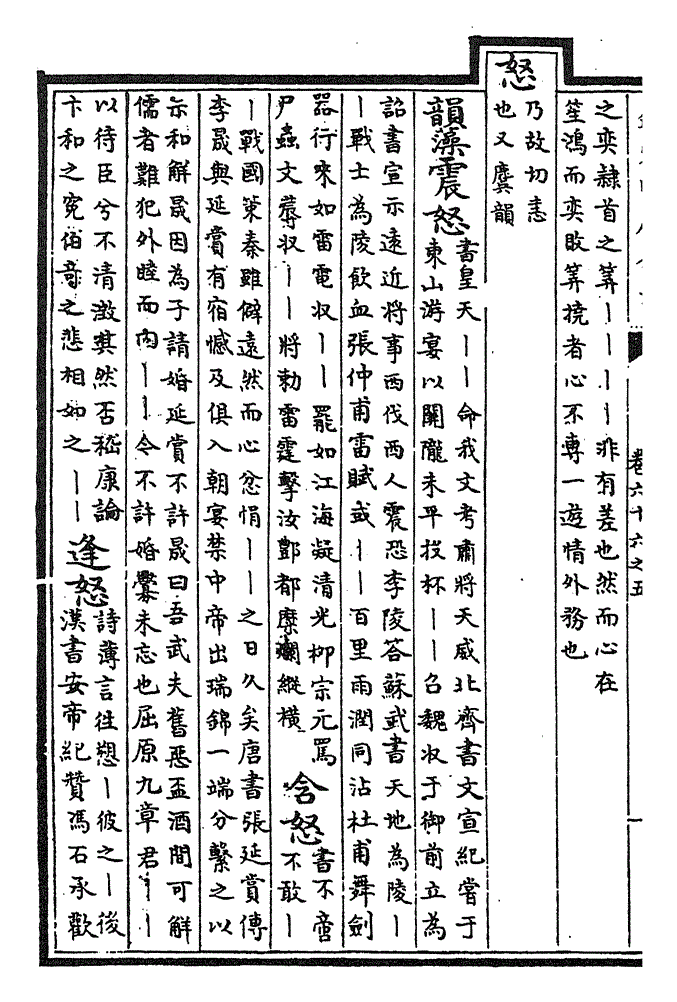 卷六十六之五
一
之奕隸首之筭丨丨丨丨非有差也然而心在
笙鴻而奕敗筭撓者心不專一遊情外務也
怒
乃故切恚
也又麌韻
韻藻震怒
書皇天丨丨命我文考肅將天威北齊書文宣紀嘗于
東山游宴以關隴未平投杯丨丨召魏收于御前立為
詔書宣示遠近將事西伐西人震恐李陵荅蘇武書天地為陵丨
丨戰士為陵飲血張仲甫雷賦或丨丨百里雨潤同沾杜甫舞劍
器行來如雷電收丨丨罷如江海凝清光柳宗元罵
尸蟲文蓐收丨丨將勅雷霆擊汝酆都糜爛縱橫
含怒
書不啻
不敢丨
丨戰國策秦雖僻遠然而心忿悁丨丨之日久矣唐書張延賞傳
李晟與延賞有宿憾及俱入朝宴禁中帝出瑞錦一端分繫之以
示和解晟因為子請婚延賞不許晟曰吾武夫舊惡盃酒間可解
儒者難犯外睦而內丨丨今不許婚釁未忘也屈原九章君丨丨
以待臣兮不清澂其然否嵇康論
卞和之冤伯奇之悲相如之丨丨
逢怒
詩薄言往愬丨彼之丨後
漢書安帝紀贊馮石承歡